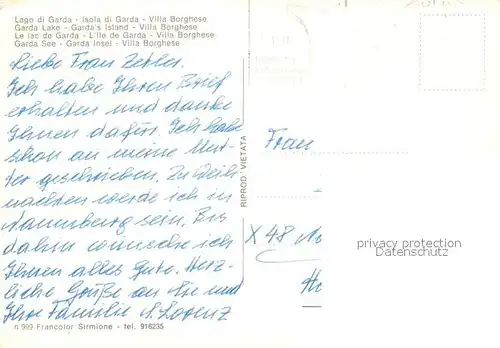 Lago di Garda - Isola di Garda - Villa Borghese
Garda Lake - Garda's Island - Villa Borghese
Le lac de Garda - L'Ile de Garda - Villa Borghese
Garda See - Garda Insel - Villa Borghese
Liebe Frau
Ich habe Ihren Brief
erhalten und danke
Ihnen dafür. Ich habe
schon an meine Mut-
ter geschrieben. Zu Weih
nachten werde ich in
Naumburg sein. Bis
dahin wünsche ich
Ihnen alles Gute. Herz-
liche Grüße an Sie und
Ihre Familie S. Lorenz
n 999 Francolor Sirmione - tel. 916235
RIPROD. VIETATA
Frau
X 48
privacy protection
Datenschutz